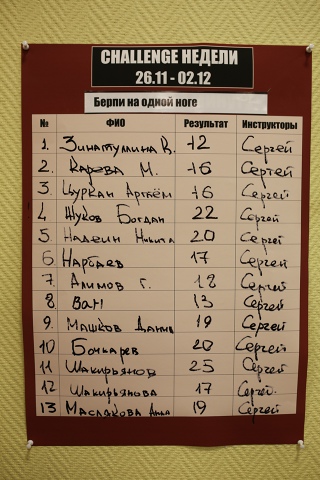 CHALLENGE НЕДЕЛИ
26.11 - 02.12
Берпи на одной ноге
№ ФИО Результат Инструкторы
1. Зинатулина К. 12 Сергей
2. Карева М. 16 Сергей
3. Цуркан Артём 16 Сергей
4 Жуков Богдан 22 Сергей
5. Надеин Никита 20 Сергей
6 Нарбаев 17 Сергей
7. Алимов Г. 18 Сергей
8 13 Сергей
9. Машков Данил 19 Сергей
10 Бочкарев 20 Сергей
11 Шакирьянов 25 Сергей
12 Шакирьянова 17 Сергей.
13 Маслакова Анна 19 Сергей